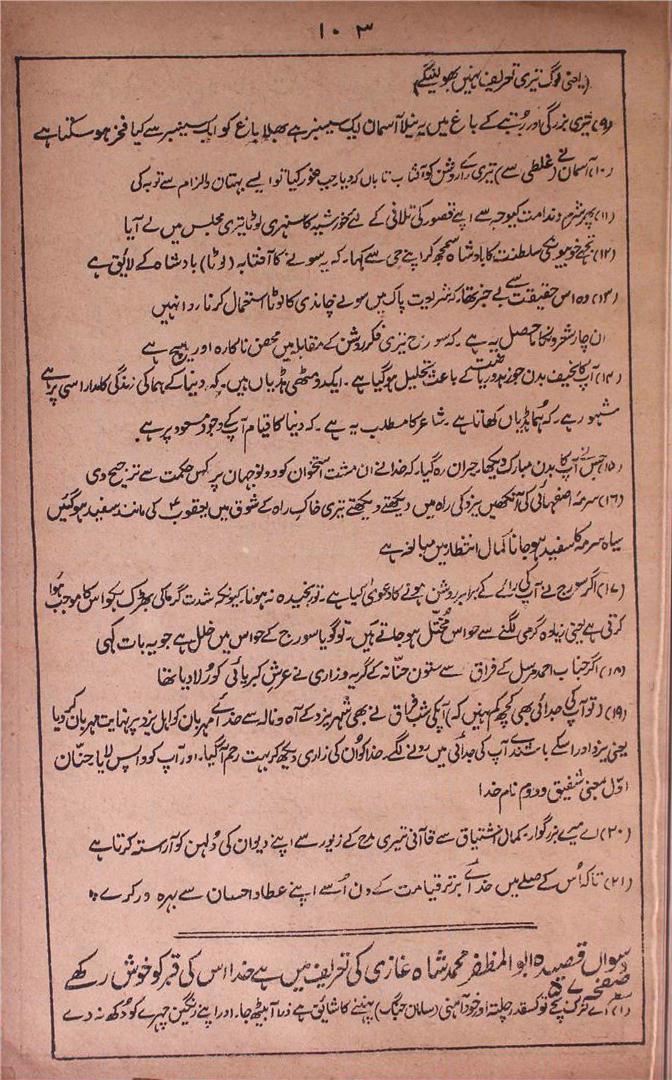 ۱۰۳
(یعنی لوگ تیری تعریف نہیں بھولینگے)
(۹) تیری بزرگی اور رتبے کے باغ میں یہ نیلا آسمان ایک سیمنبر ہے بھلا باغ کو ایک سیمنبر سے کیا فخر ہو سکتا ہے
(۱۰) آسمان نے (غلطی سے) تیری رائے روشن کو آفتاب تاباں کہدیا جب غور کیا تو ایسے بہتان والزام سے توبہ کی
(۱۱) پھر شرم و ندامت کیوجہ سے اپنے قصور کی تلافی کے لئے خورشید کا سنہری لوٹا تیری مجلس میں لے آیا
(۱۲) تجھے خوبیونکی سلطنت کا بادشاہ سمجھ کر اپنے جی سے کہا۔ کہ یہ سونے کا آفتابہ (لوٹا) بادشاہ کے لائق ہے
(۱۳) وہ اس حقیقت سے بے خبر تھا۔ کہ شریعت پاک میں سونے چاندی کا لوٹا استعمال کرنا روا نہیں
ان چار شعرونکا ماحصل یہ ہے۔ کہ سورج تیری فکر روشن کے مقابل میں محض ناکارہ اور ہیچ ہے
(۱۴) آپ کا نحیف بدن جو زہد و ریاضت کے باعث تحلیل ہو گیا ہے۔ ایک دو مٹھی ہڈیاں ہیں۔ کہ دنیا کے ہما کی زندگی کا مدار اسی پر ہے
مشہور ہے۔ کہ ہُما ہڈیاں کھاتا ہے۔ شاعر کا مطلب یہ ہے۔ کہ دنیا کا قیام آپ کے وجود مسعود پر ہے۔
(۱۵) جس نے آپ کا بدن مبارک دیکھا حیران رہ گیا۔ کہ خدا نے ان مشت استخوان کو دونوجہان پر کس حکمت سے ترجیح دی
(۱۶) سرمہ اصفہانی کی آنکھیں یزد کی راہ میں دیکھتے دیکھتے تیری خاک راہ کے شوق میں یعقوب ؑ کی مانند سفید ہو گئیں
سیاہ سرمہ کا سفید ہو جانا کمال انتظار میں مبالغہ ہے
(۱۷) اگر سورج نے آپ کی رائے کے برابر روشن ہونے کا دعویٰ کیا ہے۔ تو رنجیدہ نہ ہونا۔ کیونکہ شدت گرما کی بھڑک بکواس کا موجب ہوا
کرتی ہے یعنی زیادہ گرمی لگنے سے حواس مختل ہو جاتے ہیں۔ تو گویا سورج کے حواس میں خلل ہے جو یہ بات کہی
(۱۸) اگر جناب احمد مرسل کے فراق سے ستون حنّانہ کے گریہ وزاری نے عرش کبریائی کو رُلا دیا تھا
(۱۹) (تو آپ کی جدائی بھی کچھ کم نہیں کہ) آپکی شب فراق نے بھی شہر یزد کے آہ و نالہ سے خدائے مہربان کو اہل یزد پر نہایت مہربان کر دیا
یعنی یزد اور اسکے باشندے آپ کی جدائی میں رونے لگے۔ خدا کو اُن کی زاری دیکھ کر بہت رحم آ گیا۔ اور آپ کو واپس لایا حنّان
اوّل معنی شفیق و دوم نام خدا
(۲۰) اے میرے بزرگوار۔ کمال اشتیاق سے قاآنی تیری مدح کے زیور سے اپنے دیوان کی دُلہن کو آراستہ کرتا ہے
(۲۱) تاکہ اُس کے صلے میں خدائے برتر قیامت کے دن اُسے اپنے عطا و احسان سے بہرہ ور کرے۔
سواں قصیدہ ابو المظفر محمد شاہ غازی کی تعریف میں ہے خدا اس کی قبر کو خوش رکھے
صفحے ۵۷
(۱) اے ترک بچے تو کسقدر چلتہ اور خود آہنی (سامان جنگ) پہننے کا شائق ہے ذرا آ بیٹھ جا۔ اور اپنے رنگین چہرے کو دُکھ نہ دے